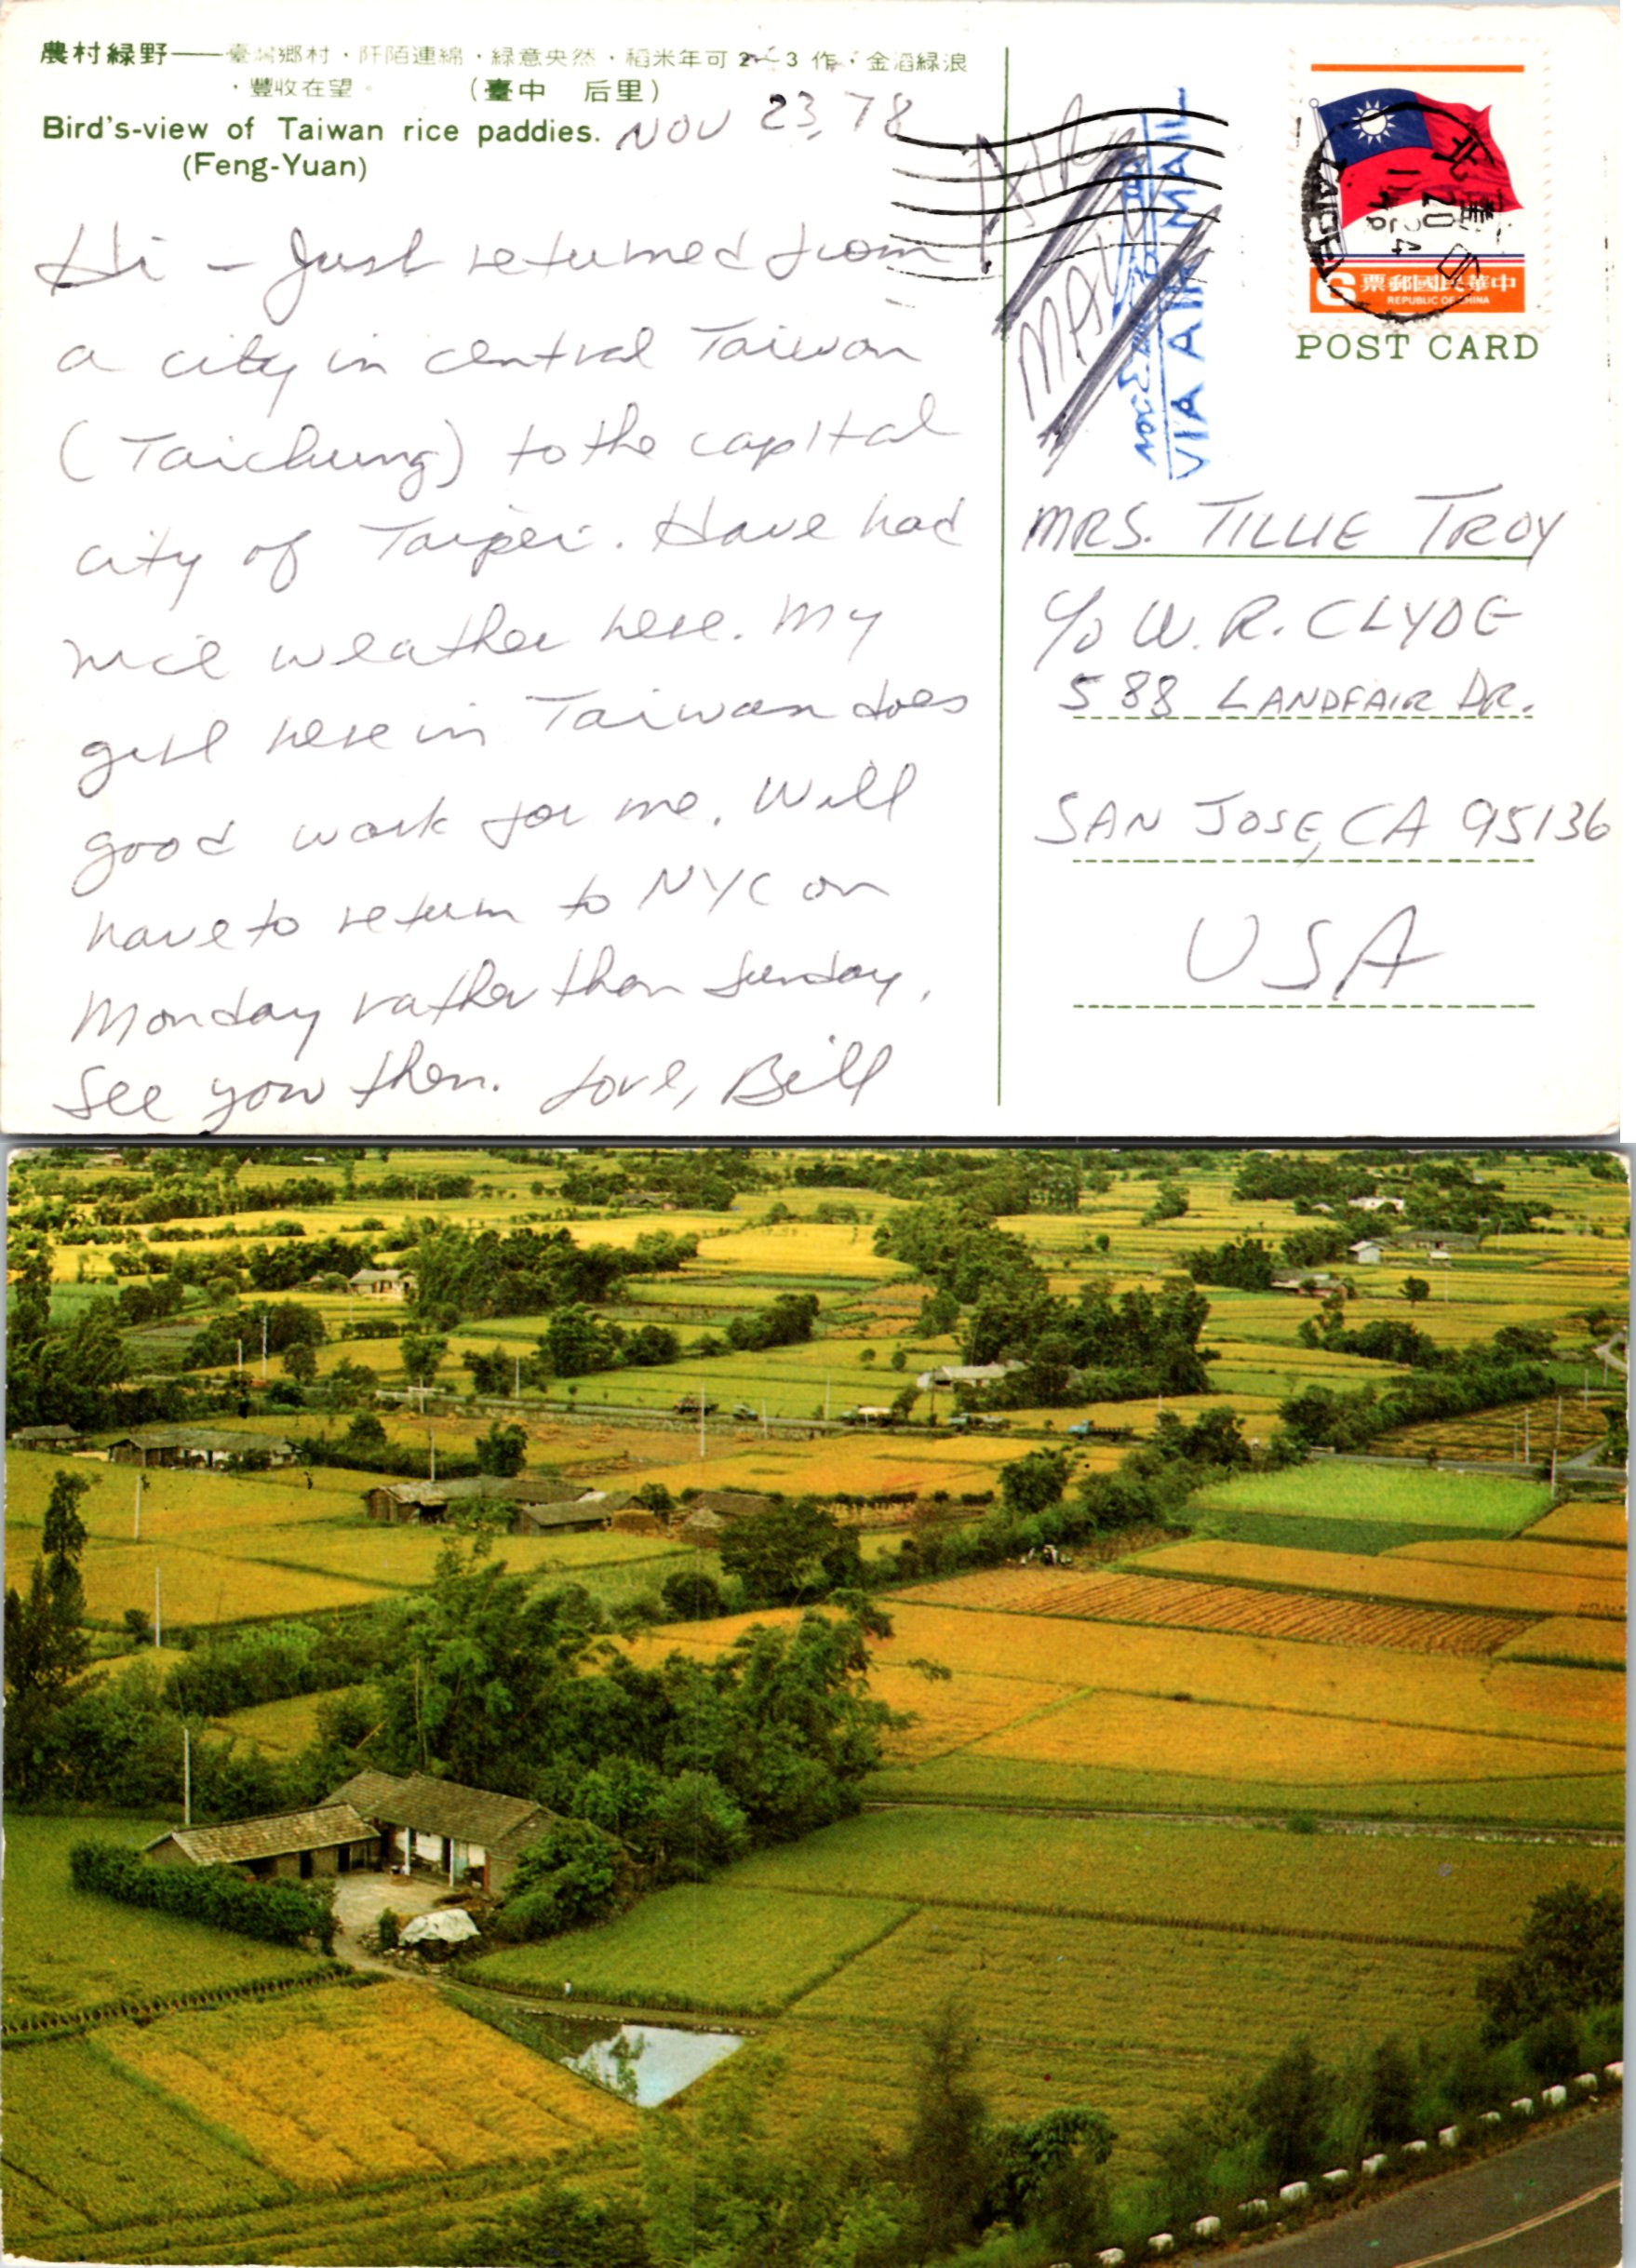 農村綠野——臺灣鄉村，阡陌連綿，綠意央然，稻米年可2～3作，金滔綠浪
，豐收在望。 （臺中 后里）
Bird's-view of Taiwan rice paddies.
(Feng-Yuan)
NOV 23, 78
Hi - Just returned from
a city in central Taiwan
(Taichung) to the capital
city of Taipei. Have had
nice weather here. My
girl here in Taiwan does
good work for me. Will
have to return to NYC on
Monday rather than Sunday.
See you then. Love, Bill
AIR
MAIL
VIA AIR MAIL
TAIPEI
6 票郵國民華中
REPUBLIC OF CHINA
POST CARD
MRS. TILLIE TROY
c/o W. R. CLYDE
588 LANDFAIR DR.
SAN JOSE, CA 95136
USA